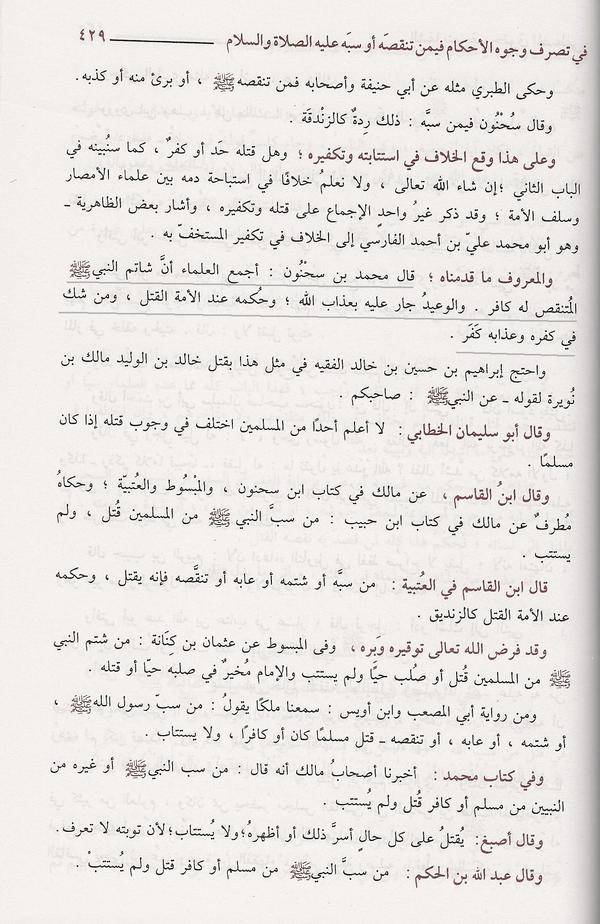 في تصرف وجوه الأحكام فيمن تنقصَه أو سبَه عليه الصلاة والسلام ـــــــــ ٤٢٩
وحكى الطبري مثله عن أبي حنيفة وأصحابه فمن تنقصه ﷺ ، أو برئ منه أو كذبه .
وقال سُحْنُون فيمن سبَّه : ذلك رِدةٌ كالزندقَة .
وعلى هذا وقع الخلاف في استتابته وتكفيره ؛ وهل قتله حَد أو كفرٌ ، كما سنُبينه في
الباب الثاني ؛ إن شاء الله تعالى ، ولا نعلمُ خلافًا في استباحة دمه بين علماء الأمصار
وسلف الأمة ؛ وقد ذكر غيرُ واحدٍ الإجماع على قتله وتكفيره ، وأشار بعض الظاهرية ـ
وهو أبو محمد عليّ بن أحمد الفارسي إلى الخلاف في تكفير المستخفّ به .
والمعروف ما قدمناه ؛ قال محمد بن سحْنُون : أجمع العلماء أنَّ شاتم النبي ﷺ
المُتنقص له كافر . والوعيدُ جار عليه بعذاب الله ؛ وحُكمه عند الأمة القتل ، ومن شك
في كفره وعذابه كَفَر .
واحتج إبراهيم بن حسين بن خالد الفقيه في مثل هذا بقتل خالد بن الوليد مالك بن
نُويرة لقوله ـ عن النبي ﷺ : صاحبكم .
وقال أبو سليمان الخطابي : لا أعلم أحدًا من المسلمين اختلف في وجوب قتله إذا كان
مسلمًا .
وقال ابنُ القاسم ، عن مالك في كتاب ابن سحنون ، والمبْسُوط والعُتبيّة ؛ وحكاهُ
مُطرفٌ عن مالك في كتاب ابن حبيب : من سبَّ النبي ﷺ من المسلمين قُتل ، ولم
يستتب .
قال ابن القاسم في العُتبية : من سبَّه أو شتمه أو عابه أو تنقَّصه فإنه يقتل ، وحكمه
عند الأمة القتل كالزنديق .
وقد فرض الله تعالى توقيره وَبره ، وفى المبسوط عن عثمان بن كِنَانة : من شتم النبي
ﷺ من المسلمين قُتل أو صُلب حيًّا ولم يستتب والإمام مُخيرٌ في صلبه حيًّا أو قتله .
ومن رواية أبي المصعب وابن أويس : سمعنا ملكًا يقولُ : من سبّ رسول الله ﷺ ،
أو شتمه ، أو عابه ، أو تنقصه ـ قتل مسلمًا كان أو كافرًا ، ولا يستتاب .
وفي كتاب محمد : أخبرنا أصحابُ مالك أنه قال : من سب النبي ﷺ أو غيره من
النبيين من مسلم أو كافر قُتل ولم يُستتب .
وقال أصبغ: يُقتلُ على كل حالٍ أسرَّ ذلك أو أظهرهُ؛ ولا يُستتاب؛ لأن توبته لا تعرف.
وقال عبد الله بن الحكم : من سبَّ النبي ﷺ من مسلم أو كافر قتل ولم يُستتبْ .